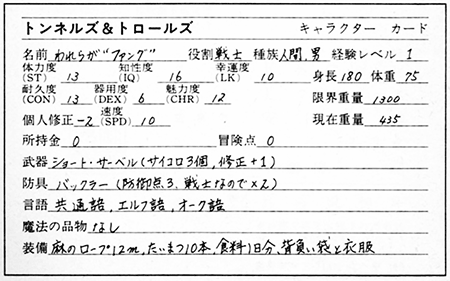 トンネルズ&トロールズ キャラクター カード
名前 われらが"ファング" 役割 戦士 種族 人間,男 経験レベル 1
体力度(ST) 13 知性度(IQ) 16 幸運度(LK) 10 身長 180 体重 75
耐久度(CON) 13 器用度(DEX) 6 魅力度(CHR) 12 限界重量 1300
個人修正 -2 速度(SPD) 10 現在重量 435
所持金 0 冒険点 0
武器 ショート・サーベル(サイコロ3個,修正+1)
防具 バックラー(防御点3,戦士なので×2)
言語 共通語,エルフ語,オーク語
魔法の品物 なし
装備 麻のロープ12m,たいまつ10本,食料1日分,背負い袋と衣服